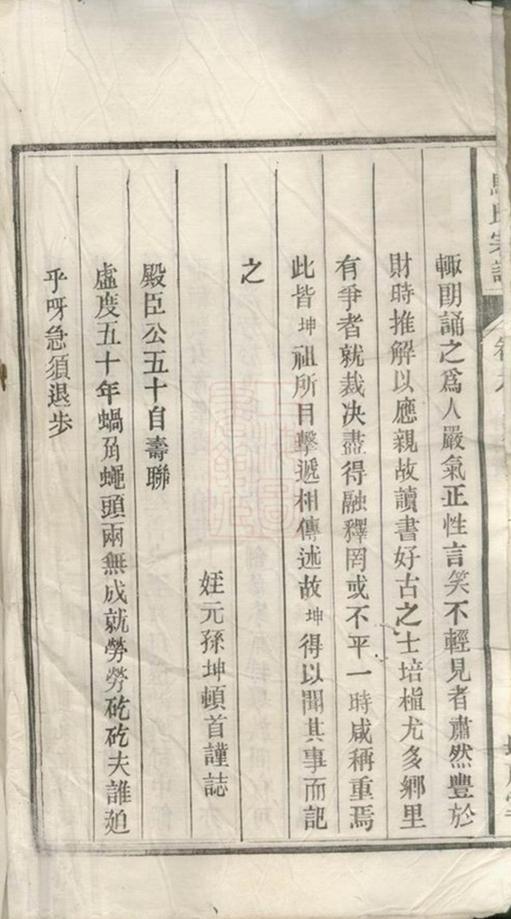 馬氏宗譜
卷九
輙朗誦之爲人嚴氣正性言笑不輕見者肅然豐於
財時推解以應親故讀書好古之士培植尤多鄉里
有爭者就裁决盡得融釋罔或不平一時咸稱重焉
此皆坤祖所目擊遞相傳述故坤得以聞其事而記
之
姪元孫坤頓首謹誌
殿臣公五十自壽聯
虛度五十年蝸角蠅頭兩無成就勞勞矻矻夫誰廹
乎呀急須退步